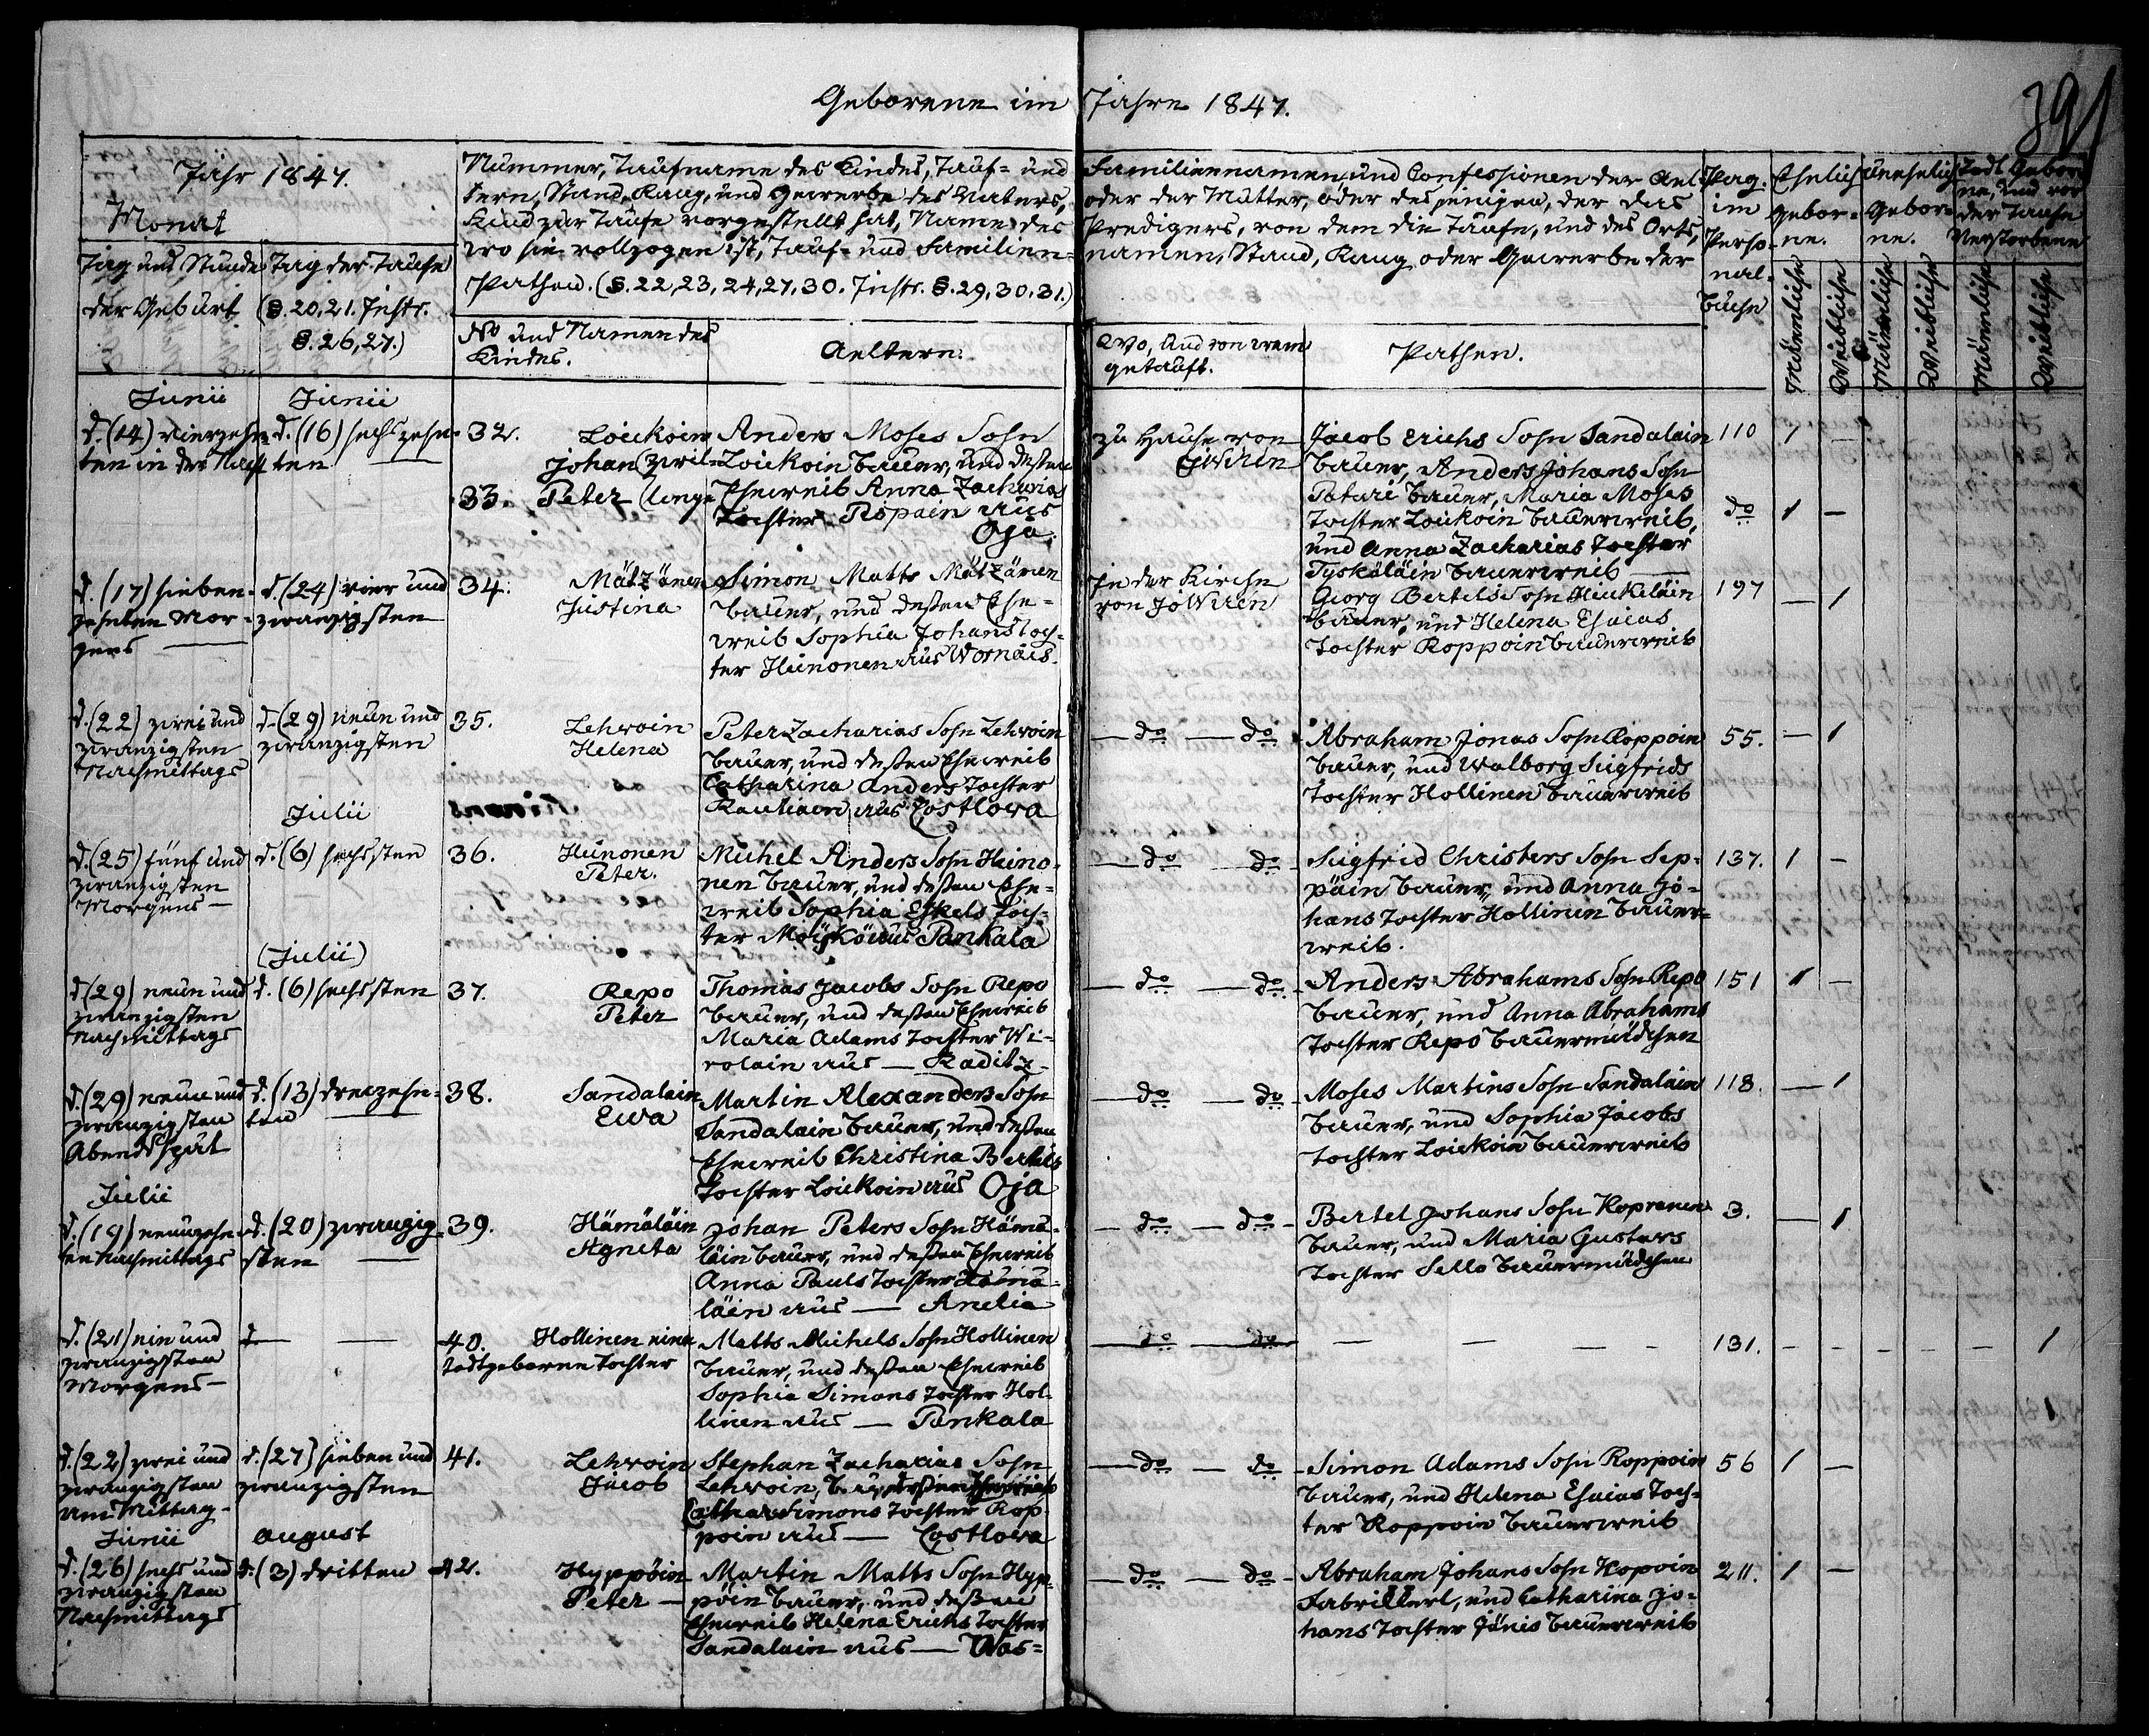 Geborene im Jahre 1847.
391
Jahr 1847.
Monat
Tag und Stunde der Geburt
Tag der Taufe
(§. 20, 21. Instr.
§. 26, 27.)
Nummer, Taufname des Kindes, Tauf= und Familiennamen, und Confessionen der Ael-
tern, Stand, Rang, und Gewerbe des Vaters, oder der Mutter, oder desjenigen, der das
Kind zur Taufe vorgestellt hat, Name des Predigers, von dem die Taufe, und des Orts,
wo sie vollzogen ist, Tauf= und Familien=namen, Stand, Rang oder Gewerbe der
Pathen. (§. 22, 23, 24, 27, 30. Instr. §. 29, 30, 31.)
No und Namen des
Kindes.
Aeltern.
Wo, und von wem
getauft.
Pathen.
Pag.
im
Perso-
nal-
buche
Ehelich
Gebor-
ne.
Unehelich
Gebor-
ne.
Todt Gebor-
ne, und vor
der Taufe
Verstorbene
Männliche
Weibliche
Männliche
Weibliche
Männliche
Weibliche
Junii
Junii
d. (14) vierzehn-
ten in der Nacht
d. (16) sechszehn-
ten
32. Loickoin
Johan (Zwil=
33. Peter (linge
Anders Moses Sohn
Loickoin bauer, und deßen
Eheweib Anna Zacharias
Tochter Ripaen aus
Oja.
zu Hause von
Jowrén
Jacob Erichs Sohn Sandalain
bauer, Anders Johans Sohn
Paturi bauer, Maria Moses
Tochter Loickoin bauerweib,
und Anna Zacharias Tochter
Tyskäläin bauerweib
110 1 —
do 1 —
d. (17) sieben-
zehnten Mor-
gens
d. (24) vier und
zwanzigsten
34. Mätzänen
Justina
Simon Matts Mätzänen
bauer, und deßen Ehe-
weib Sophia Johans Toch-
ter Heinonen aus Wornois.
In der Kirche
von Jowrén
Georg Bertels Sohn Huckeläin
bauer, und Helena Esaias
Tochter Roppoin bauerweib
197 — 1
d. (22) zwei und
zwanzigsten
Nachmittags
d. (29) neun und
zwanzigsten
35. Lehvoin
Helena
Peter Zacharias Sohn Lehvoin
bauer, und deßen Eheweib
Catharina Anders Tochter
Rautiaen aus Costlova
— do — do
Abraham Jonas Sohn Roppoin
bauer, und Walborg Sigfrids
Tochter Hollinen bauerweib
55. — 1
Julii
d. (25) fünf und
zwanzigsten
Morgens —
d. (6) sechsten
36. Heinonen
Peter.
Michel Anders Sohn Heino-
nen bauer, und deßen Ehe-
weib Sophia Eskels Toch-
ter Moiskö aus Pankala
— do — do
Sigfrid Christers Sohn Sep-
päin bauer, und Anna Jo-
hans Tochter Hollinen bauer-
weib.
137. 1 —
(Julii)
d. (29) neun und
zwanzigsten
Nachmittags
d. (6) sechsten
37. Repo
Peter
Thomas Jacobs Sohn Repo
bauer, und deßen Eheweib
Maria Adams Tochter Wi-
rolain aus — Raditz
— do — do
Anders Abrahams Sohn Repo
bauer, und Anna Abrahams
Tochter Repo bauermädchen
151 1 —
d. (29) neun und
zwanzigsten
Abend spät
d. (13) dreizehn-
ten
38. Sandalain
Ewa
Martin Alexanders Sohn
Sandalain bauer, und deßen
Eheweib Christina Bertels
Tochter Loickoin aus Oja
— do — do
Moses Martins Sohn Sandalain
bauer, und Sophia Jacobs
Tochter Loickoin bauerweib
118. — 1
Julii
d. (19) neunzehn-
ten Nachmittags
d. (20) zwanzig-
sten
39. Hämäläin
Agneta
Johan Peters Sohn Hämä-
läin bauer, und deßen Eheweib
Anna Pauls Tochter Hämä-
läin aus — Anelia
— do — do
Bertel Johans Sohn Kopranen
bauer, und Maria Gustavs
Tochter Sello bauermädchen
3. — 1
d. (21) ein und
zwanzigsten
Morgens —
40. Hollinen eine
todtgeborne Tochter
Matts Michels Sohn Hollinen
bauer, und deßen Eheweib
Sophia Simons Tochter Hol-
linen aus — Pankala
— do — do — — —
131. - - - - - 1
d. (22) zwei und
zwanzigsten
am Mittag
d. (27) sieben und
zwanzigsten
41. Lehvoin
Jacob
Stephan Zacharias Sohn
Lehvoin, bauer, deßen Eheweib
Cathar. Simons Tochter Rop
poin aus — Costlova
— do — do
Simon Adams Sohn Roppoin
bauer, und Helena Esaias Toch-
ter Roppoin bauerweib
56 1 —
Junii
August
d. (26) sechs und
zwanzigsten
Nachmittags
d. (3) dritten
42. Hyppöin
Peter —
Martin Matts Sohn Hyp-
pöin bauer, und deßen
Eheweib Helena Erichs Tochter
Sandalain aus — Was=
— do — do
Abraham Johans Sohn Hopoin
Fabrikkerl, und Catharina Jo-
hans Tochter Jönis bauerweib
211. 1 —